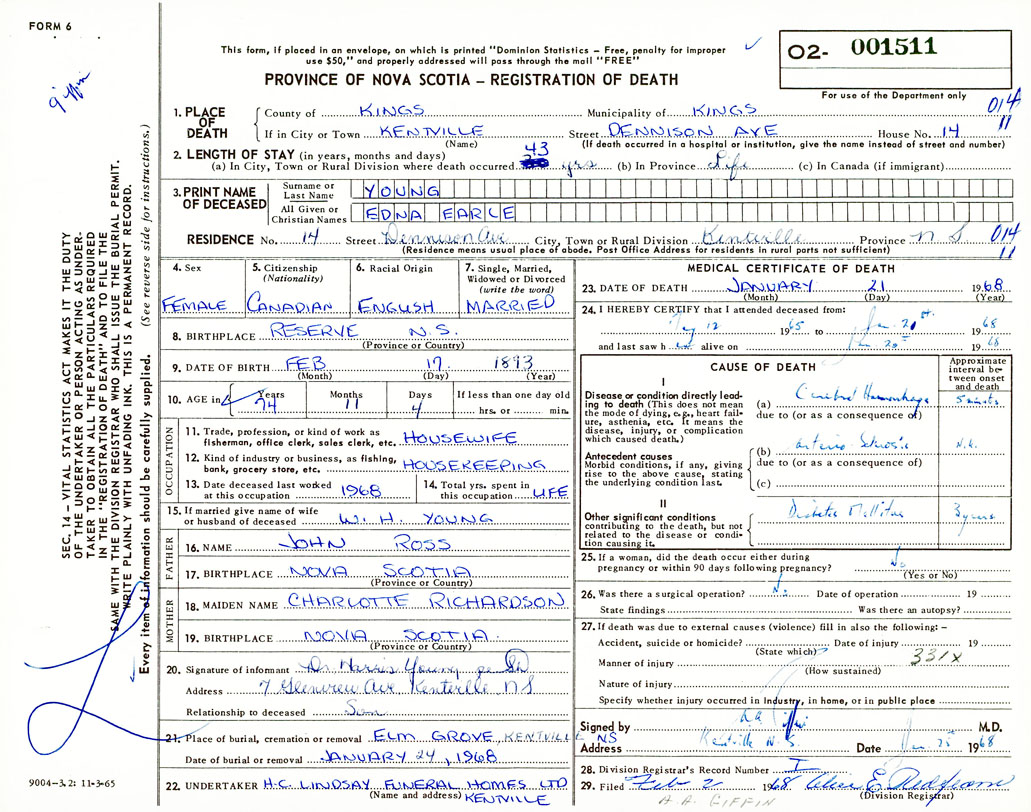 FORM 6
Giffin
This form, if placed in an envelope, on which is printed "Dominion Statistics – Free, penalty for improper
use $50," and properly addressed will pass through the mail "FREE"
PROVINCE OF NOVA SCOTIA – REGISTRATION OF DEATH
O2- 001511
For use of the Department only
014
11
1. PLACE OF DEATH
County of KINGS Municipality of KINGS
If in City or Town KENTVILLE Street DENNISON AVE House No. 14
(Name) (If death occurred in a hospital or institution, give the name instead of street and number)
2. LENGTH OF STAY (in years, months and days)
43
(a) In City, Town or Rural Division where death occurred yrs (b) In Province Life (c) In Canada (if immigrant)
3. PRINT NAME OF DECEASED
Surname or Last Name YOUNG
All Given or Christian Names EDNA EARLE
RESIDENCE No. 14 Street Dennison Ave City, Town or Rural Division Kentville Province N S
014
11
(Residence means usual place of abode. Post Office Address for residents in rural parts not sufficient)
4. Sex FEMALE
5. Citizenship (Nationality) CANADIAN
6. Racial Origin ENGLISH
7. Single, Married, Widowed or Divorced (write the word) MARRIED
8. BIRTHPLACE RESERVE N.S.
(Province or Country)
9. DATE OF BIRTH FEB 17 1893
(Month) (Day) (Year)
10. AGE in Years Months Days If less than one day old
74 11 4 hrs. or min.
OCCUPATION
11. Trade, profession, or kind of work as
fisherman, office clerk, sales clerk, etc. HOUSEWIFE
12. Kind of industry or business, as fishing,
bank, grocery store, etc. HOUSEKEEPING
13. Date deceased last worked
at this occupation 1968
14. Total yrs. spent in
this occupation LIFE
15. If married give name of wife
or husband of deceased W. H. YOUNG
FATHER
16. NAME JOHN ROSS
17. BIRTHPLACE NOVA SCOTIA
(Province or Country)
MOTHER
18. MAIDEN NAME CHARLOTTE RICHARDSON
19. BIRTHPLACE NOVA SCOTIA.
(Province or Country)
20. Signature of informant Dr. Harris Young per
Address 7 Glenview Ave Kentville N S
Relationship to deceased Son
21. Place of burial, cremation or removal ELM GROVE KENTVILLE
NS
Date of burial or removal JANUARY 24, 1968
22. UNDERTAKER H.C. LINDSAY FUNERAL HOMES LTD
(Name and address) KENTVILLE
MEDICAL CERTIFICATE OF DEATH
23. DATE OF DEATH JANUARY 21 1968
(Month) (Day) (Year)
24. I HEREBY CERTIFY that I attended deceased from:
12 1965 to Jan. 21st. 1968
and last saw her alive on Jan 20th 1968
CAUSE OF DEATH
Approximate interval between onset and death
I
Disease or condition directly leading to death (This does not mean the mode of dying, e.g., heart failure, asthenia, etc. It means the disease, injury, or complication which caused death.)
(a) Cerebral Hemorrhage 5 minutes
due to (or as a consequence of)
Antecedent causes
Morbid conditions, if any, giving rise to the above cause, stating the underlying condition last.
(b) Arterio Sclerosis N.K.
due to (or as a consequence of)
(c)
II
Other significant conditions
contributing to the death, but not related to the disease or condition causing it.
Diabetes Mellitus 3 years
25. If a woman, did the death occur either during
pregnancy or within 90 days following pregnancy? No
(Yes or No)
26. Was there a surgical operation? No Date of operation 19
State findings Was there an autopsy?
27. If death was due to external causes (violence) fill in also the following:–
Accident, suicide or homicide? Date of injury 19
(State which) 331X
Manner of injury
(How sustained)
Nature of injury
Specify whether injury occurred in Industry, in home, or in public place
Signed by M.D.
Address Kentville N.S. Date Jan 25th 1968
28. Division Registrar's Record Number I
29. Filed Feb 2 1968
(Division Registrar)
A. A. GIFFIN
SEC. 14 – VITAL STATISTICS ACT MAKES IT THE DUTY
OF THE UNDERTAKER OR PERSON ACTING AS UNDER-
TAKER TO OBTAIN ALL THE PARTICULARS REQUIRED
IN THE "REGISTRATION OF DEATH" AND TO FILE THE
SAME WITH THE DIVISION REGISTRAR WHO SHALL ISSUE THE BURIAL PERMIT.
WRITE PLAINLY WITH UNFADING INK. THIS IS A PERMANENT RECORD.
Every item of information should be carefully supplied. (See reverse side for instructions.)
9004-3.2: 11-3-65